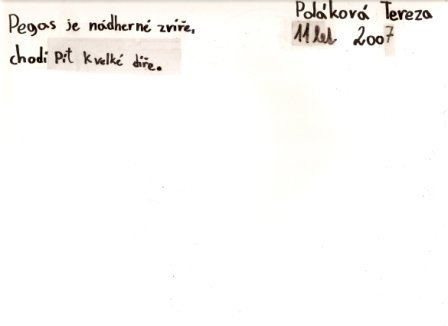 Pegas je nádherné zvíře,
chodí pít k velké díře.
Poláková Tereza
11 let 2007